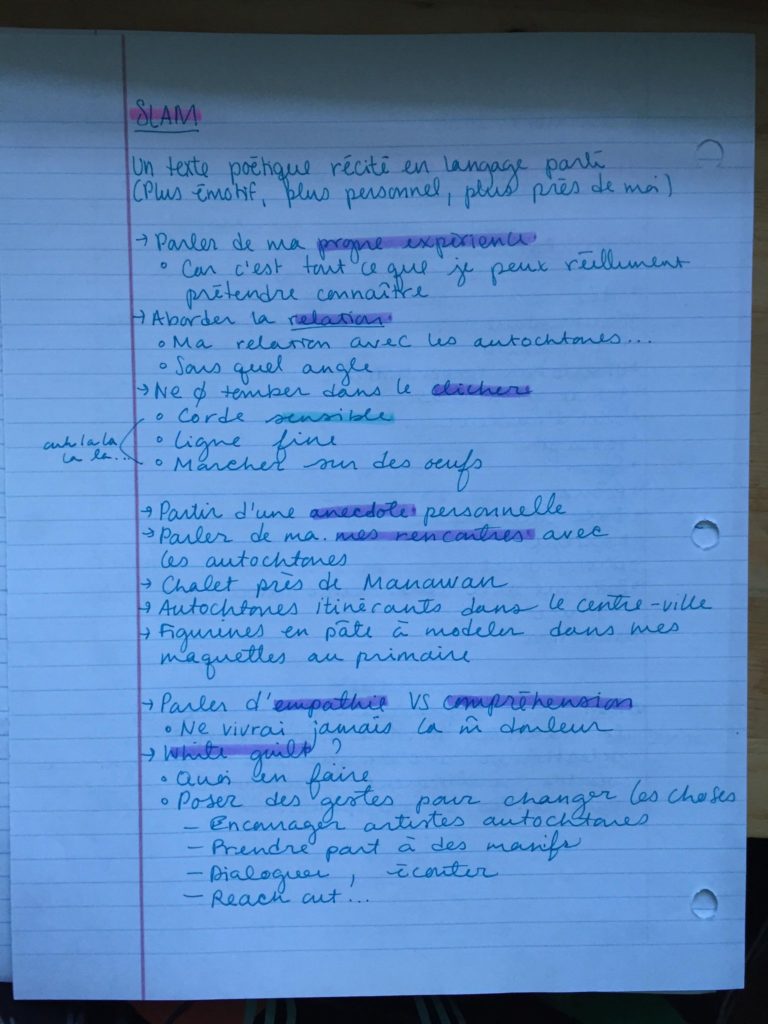 SLAM
Un texte poétique récité en langage parlé
(Plus émotif, plus personnel, plus près de moi)
→ Parler de ma propre expérience
° Car c'est tout ce que je peux réellement
prétendre connaître
→ Aborder la relation
° Ma relation avec les autochtones...
° Sous quel angle
→ Ne ∅ tomber dans le clicher
° Corde sensible
° Ligne fine
° Marcher sur des oeufs
ouh la la
la la...
→ Partir d'une anecdote personnelle
→ Parler de ma. mes rencontres avec
les autochtones
→ Chalet près de Manawan
→ Autochtones itinérants dans le centre-ville
→ Figurines en pâte à modeler dans mes
maquettes au primaire
→ Parler d'empathie VS compréhension
° Ne vivrai jamais la m̂ douleur
→ White guilt ?
° Quoi en faire
° Poser des gestes pour changer les choses
– Encourager artistes autochtones
– Prendre part à des manifs
– Dialoguer, écouter
– Reach out...